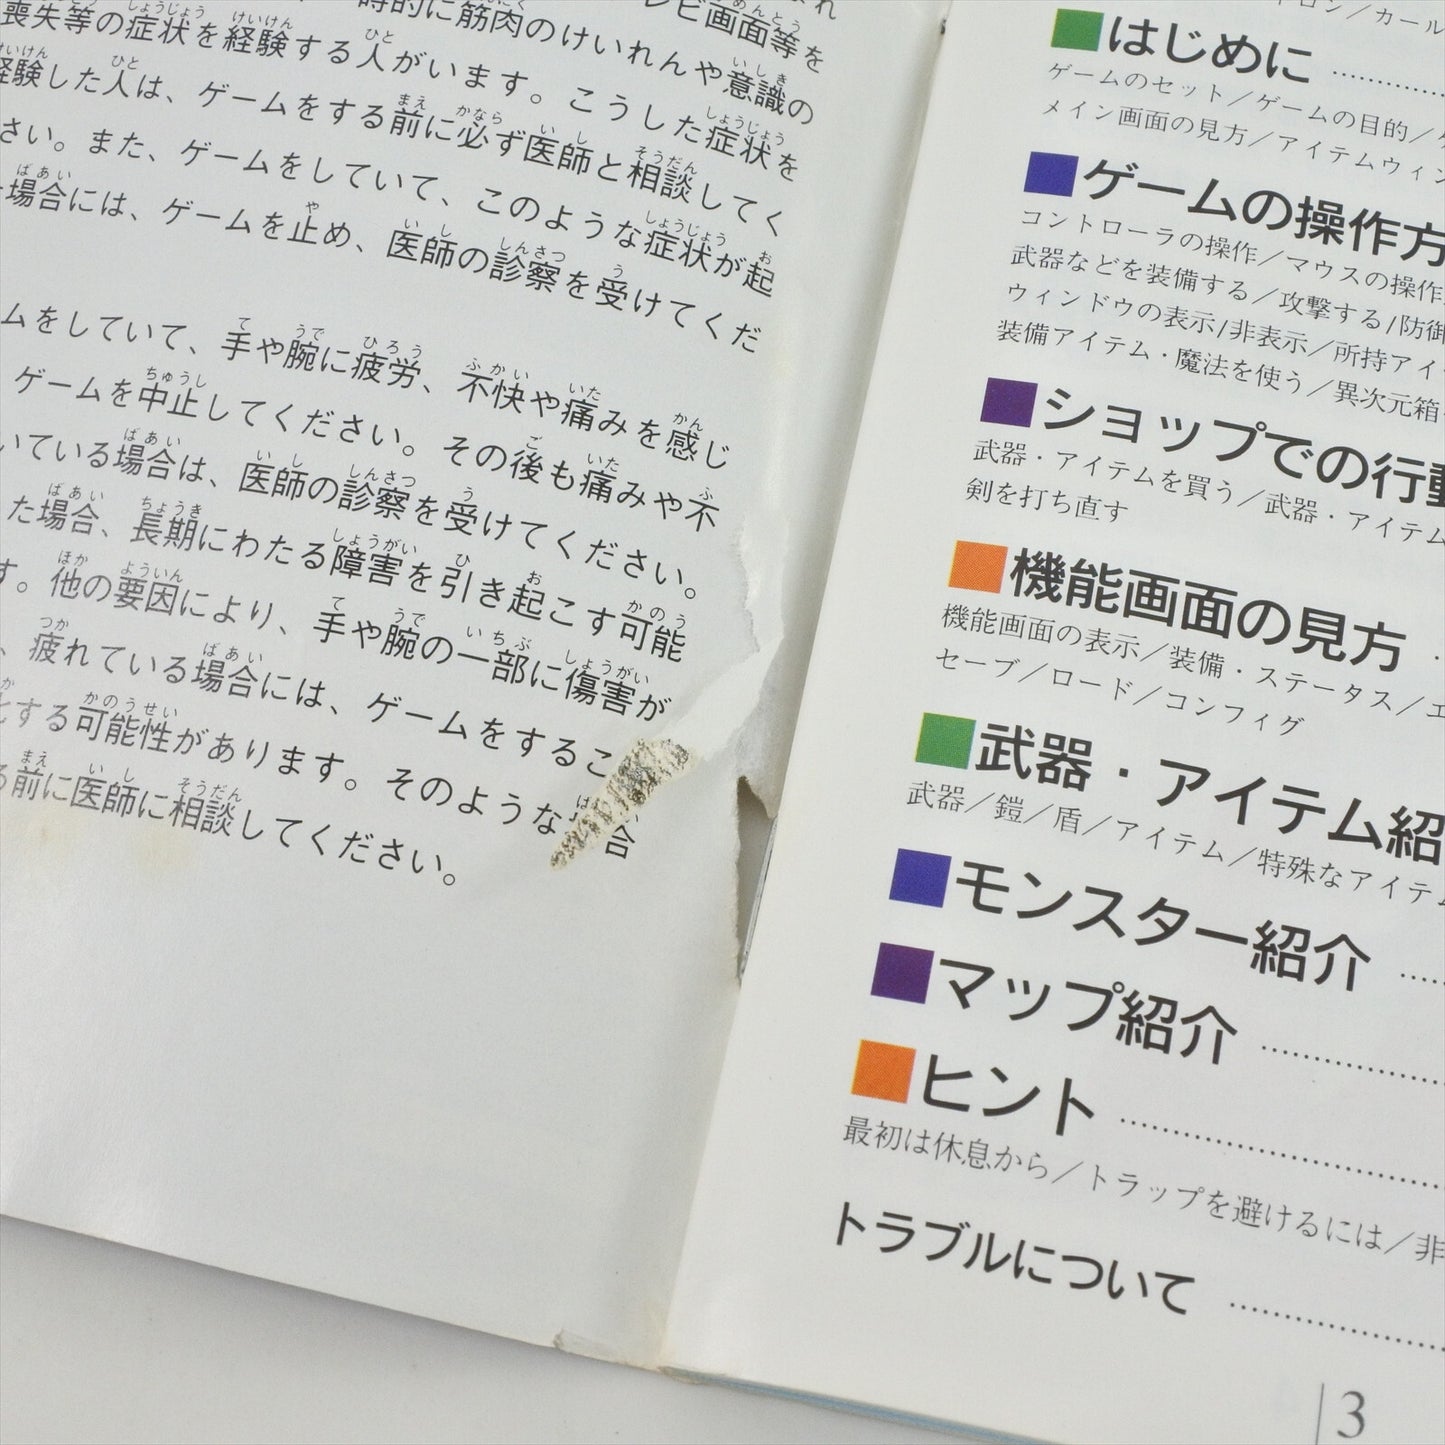 時的に筋肉のけいれんや意識の
喪失等の症状を経験する人がいます。こうした症状を
経験した人は、ゲームをする前に必ず医師と相談してく
さい。また、ゲームをしていて、このような症状が起
場合には、ゲームを止め、医師の診察を受けてくだ
ムをしていて、手や腕に疲労、不快や痛みを感じ
ゲームを中止してください。その後も痛みや不
いている場合は、医師の診察を受けてください。
た場合、長期にわたる障害を引き起こす可能
す。他の要因により、手や腕の一部に傷害が
、疲れている場合には、ゲームをするこ
とする可能性があります。そのような場合
る前に医師に相談してください。
はじめに
ゲームのセット／ゲームの目的／
メイン画面の見方／アイテムウィン
ゲームの操作方
コントローラの操作／マウスの操作
武器などを装備する／攻撃する/防御
ウィンドウの表示/非表示／所持アイ
装備アイテム・魔法を使う／異次元箱
ショップでの行動
武器・アイテムを買う／武器・アイテム
剣を打ち直す
機能画面の見方
機能画面の表示／装備・ステータス／エ
セーブ／ロード／コンフィグ
武器・アイテム紹
武器／鎧／盾／アイテム／特殊なアイテム
モンスター紹介
マップ紹介
ヒント
最初は休息から／トラップを避けるには／非
トラブルについて
3